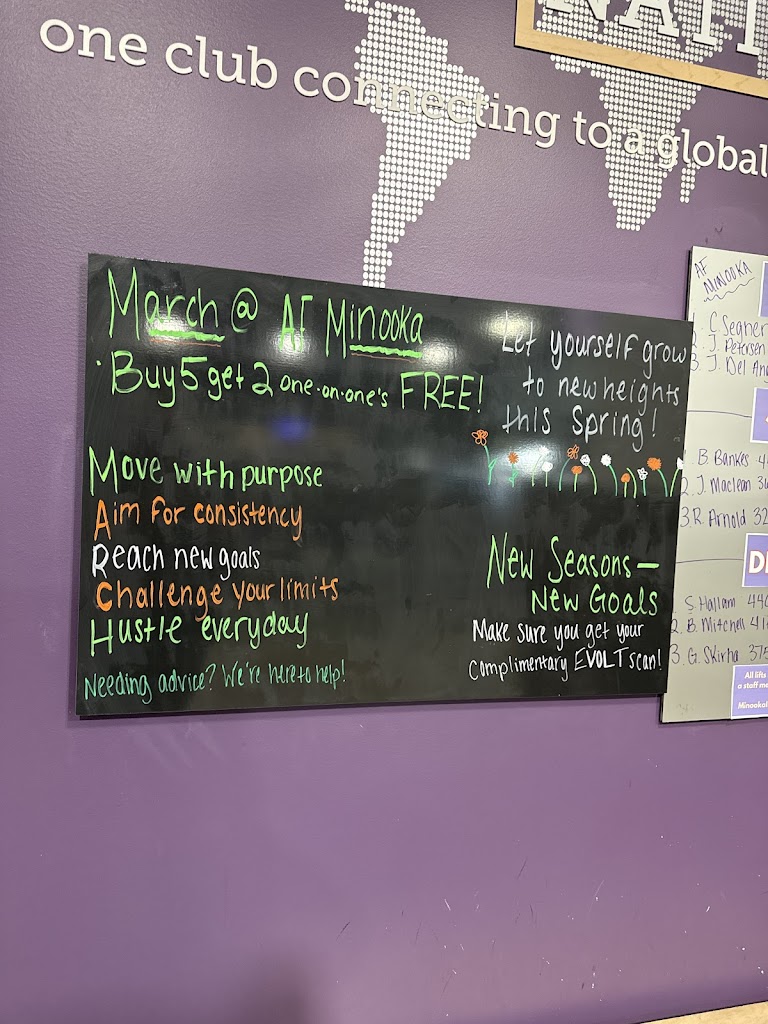 one club connecting to a global
March @ AF Minooka
· Buy 5 get 2 one-on-one's FREE!
Move with purpose
Aim for consistency
Reach new goals
Challenge your limits
Hustle everyday
Needing advice? We're here to help!
Let yourself grow
to new heights
this Spring!
New Seasons—
New Goals
Make sure you get your
complimentary EVOLT scan!
AF
MINOOKA
J. Petersen
3. J. Del
B. Bankes
2. J. Maclean
3 R. Arnold 32
S. Hallam 440
2. B. Mitchell
3. G. Skirha 375
All lifts
a staff